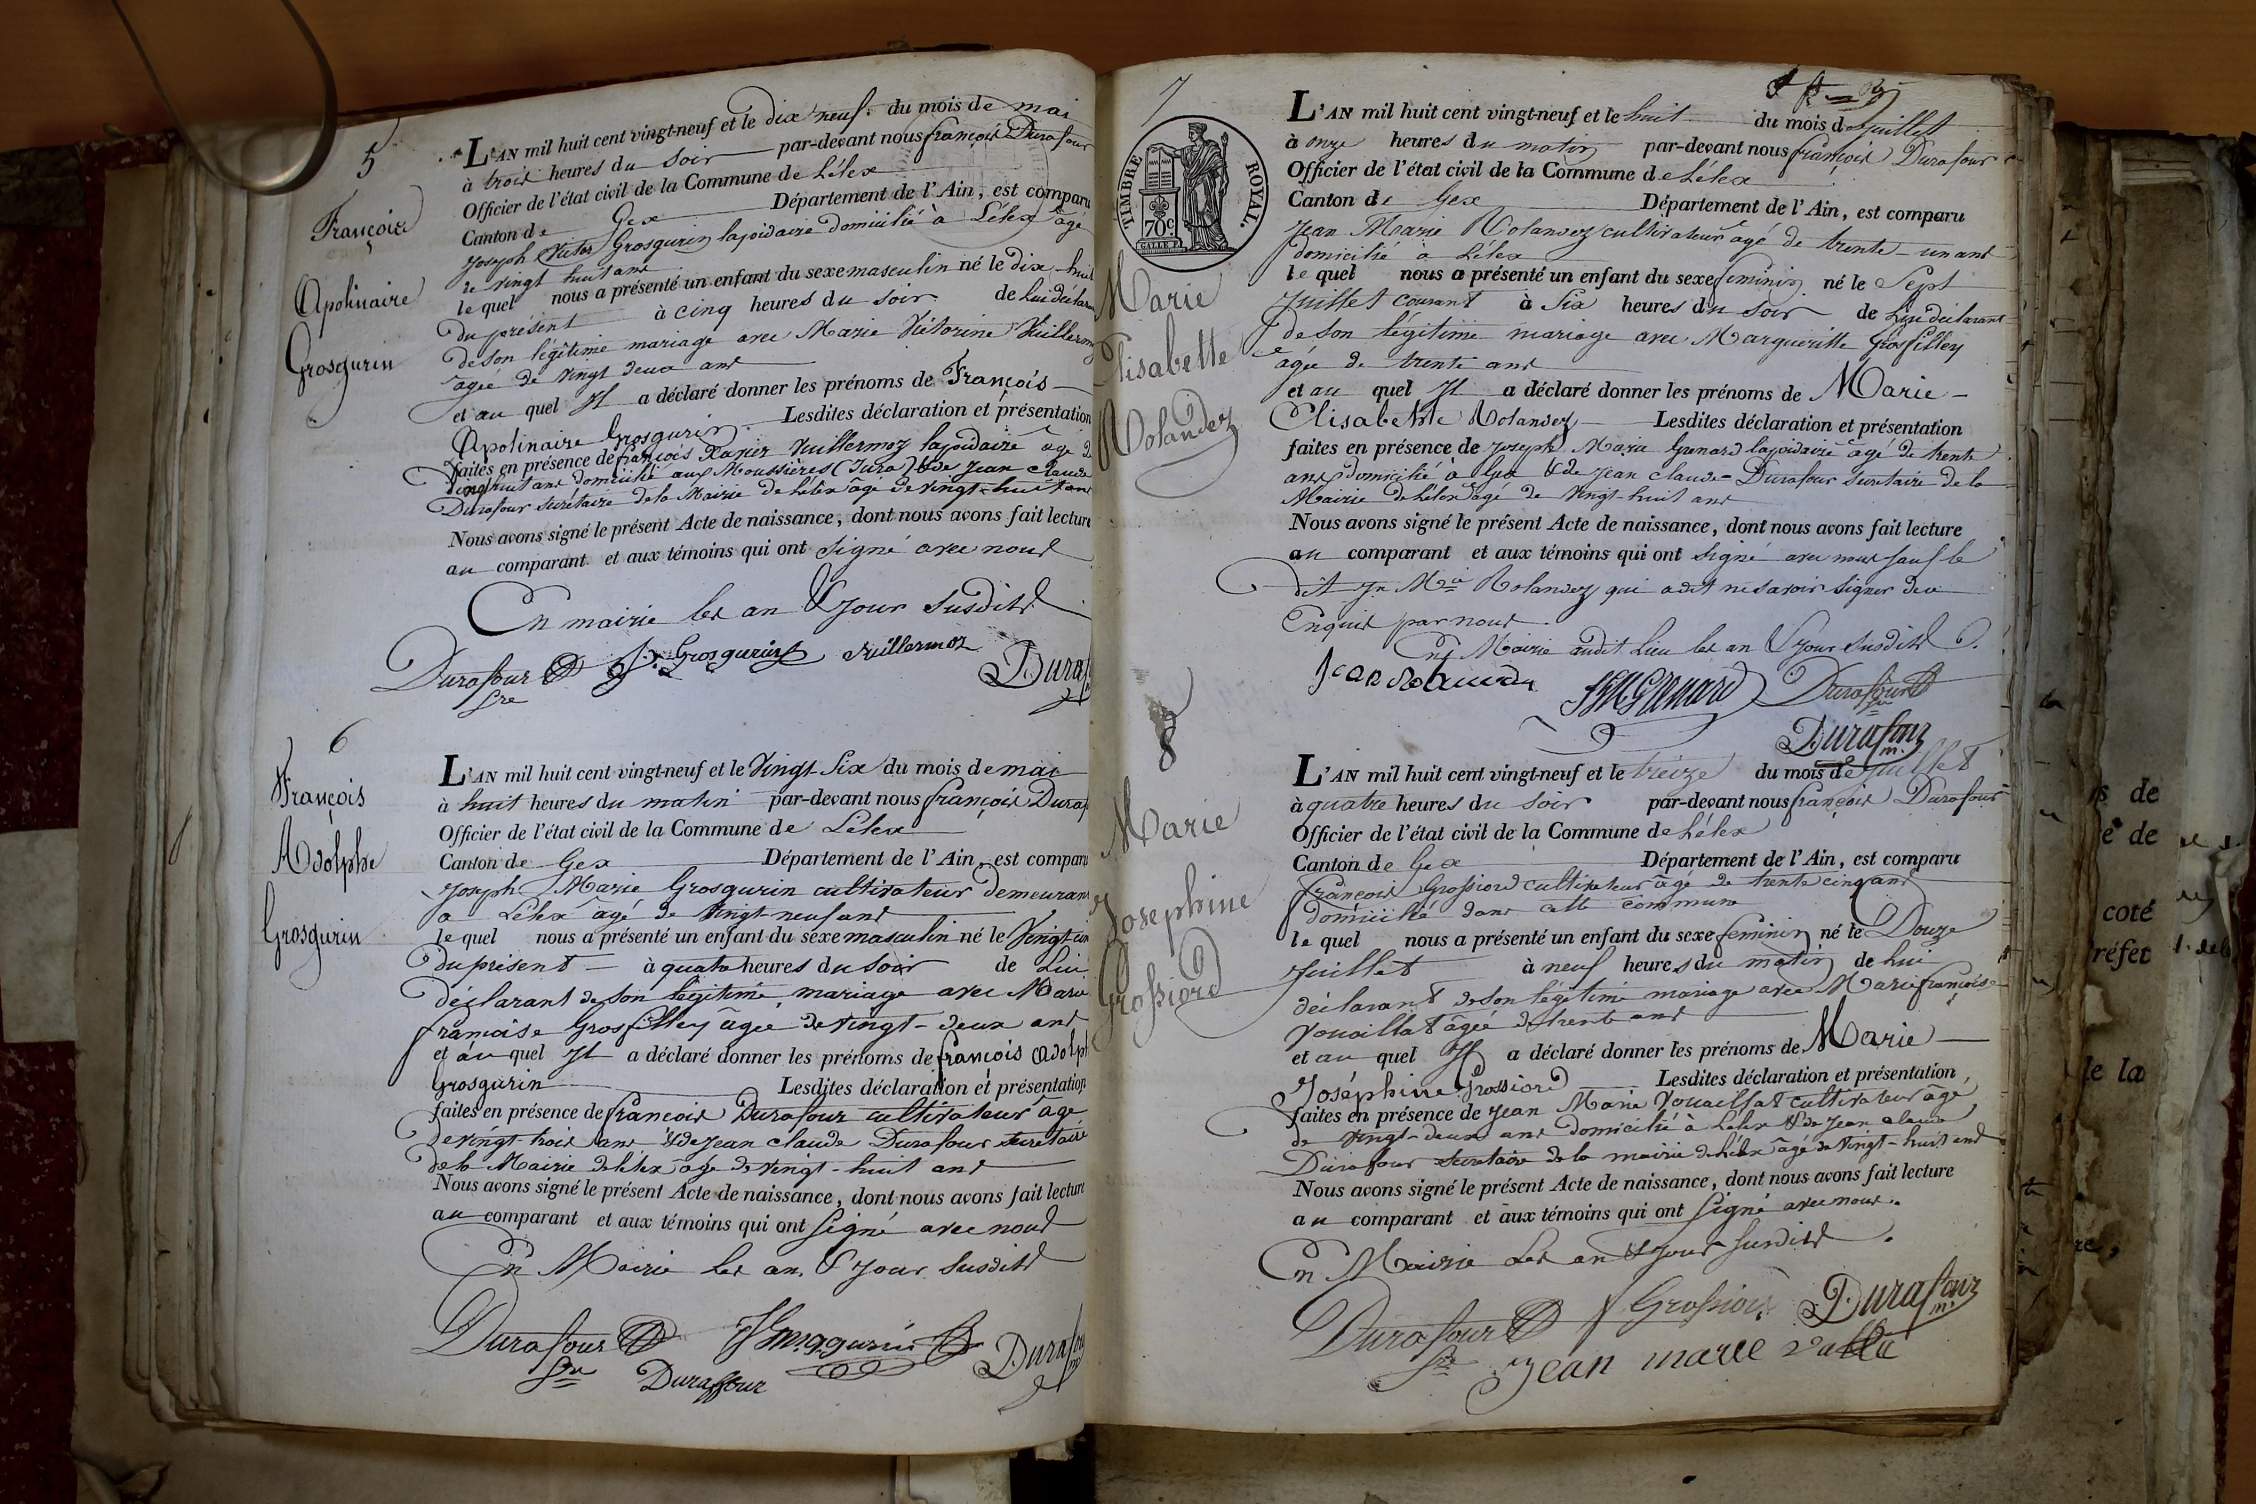 5
François
Apolinaire
Grosgurin
L'AN mil huit cent vingt-neuf et le dix neuf du mois de mai
à trois heures du Soir par-devant nous françois Durafour
Officier de l'état civil de la Commune de Lélex
Canton de Gex Département de l'Ain, est comparu
Joseph Victor Grosgurin lapidaire domicilié à Lélex âgé
de vingt huit ans
le quel nous a présenté un enfant du sexe masculin né le dix-huit
du présent à cinq heures du soir de Lui déclarant
de son légitime mariage avec Marie Victorine Vuillermoz
agée de vingt deux ans
et au quel Il a déclaré donner les prénoms de François
Apolinaire Grosgurin Lesdites déclaration et présentation
faites en présence de françois Xavier Vuillermoz lapidaire âgé de
vingt huit ans domicilié aux Moussières (Jura) & de Jean Claude
Durafour secrétaire de la Mairie de Lélex âgé de vingt-huit ans
Nous avons signé le présent Acte de naissance, dont nous avons fait lecture
au comparant et aux témoins qui ont signé avec nous
En mairie les an & jour susdits
Durafour Sre Grosgurin Vuillermoz Duraf
6
François
Adolphe
Grosgurin
L'AN mil huit cent vingt-neuf et le Vingt-Six du mois de mai
à huit heures du matin par-devant nous françois Duraf
Officier de l'état civil de la Commune de Lélex
Canton de Gex Département de l'Ain, est comparu
Joseph Marie Grosgurin cultivateur demeurant
à Lélex âgé de vingt-neuf ans
le quel nous a présenté un enfant du sexe masculin né le Vingt-cinq
du présent à quatre heures du soir de Lui
déclarant de son légitime mariage avec Marie
francoise Grosfilley âgée de vingt-deux ans
et au quel Il a déclaré donner les prénoms de françois Adolph
Grosgurin Lesdites déclaration et présentation
faites en présence de francois Durafour cultivateur âgé
de vingt-trois ans & de Jean Claude Durafour secretaire
de la Mairie de Lélex âgé de vingt-huit ans
Nous avons signé le présent Acte de naissance, dont nous avons fait lecture
au comparant et aux témoins qui ont signé avec nous
En Mairie les an & jour susdits
Durafour Sre Durafour
Duraffour
7
TIMBRE ROYAL.
70c.
Marie
Elisabette
Rolandez
L'AN mil huit cent vingt-neuf et le huit du mois de Juillet
à onze heures du matin par-devant nous françois Durafour
Officier de l'état civil de la Commune de Lélex
Canton de Gex Département de l'Ain, est comparu
Jean Marie Rolandez cultivateur âgé de trente-un ans
domicilié à Lélex
le quel nous a présenté un enfant du sexe féminin né le Sept
Juillet courant à Six heures du soir de Lui déclarant
de son légitime mariage avec Margueritte Grosfilley
agée de trente ans
et au quel Il a déclaré donner les prénoms de Marie
Elisabethe Rolandez Lesdites déclaration et présentation
faites en présence de Joseph Marie Grenard lapidaire âgé de trente
ans domicilié à Gex & de Jean Claude Durafour secrétaire de la
Mairie de Lélex âgé de vingt-huit ans
Nous avons signé le présent Acte de naissance, dont nous avons fait lecture
au comparant et aux témoins qui ont signé avec nous sauf le
dit Jn Mie Rolandez qui a dit ne savoir signer de ce
Enquis par nous
En Mairie audit Lieu les an & jour susdits
Grenard Durafour Sre
Durafour m.
8
Marie
Josephine
Grossiord
L'AN mil huit cent vingt-neuf et le treize du mois de Juillet
à quatre heures du soir par-devant nous françois Durafour
Officier de l'état civil de la Commune de Lélex
Canton de Gex Département de l'Ain, est comparu
françois Grossiord cultivateur âgé de trente cinq ans
domicilié dans cette commune
le quel nous a présenté un enfant du sexe feminin né le Douze
Juillet à neuf heures du matin de Lui
déclarant de son légitime mariage avec Marie françoise
Vouaillat âgée de trente ans
et au quel Il a déclaré donner les prénoms de Marie
Joséphine Grossiord Lesdites déclaration et présentation
faites en présence de Jean Marie Vouaillat cultivateur âgé
de vingt-deux ans domicilié à Lélex & de Jean Claude
Durafour secretaire de la mairie de Lélex âgé de vingt-huit ans
Nous avons signé le présent Acte de naissance, dont nous avons fait lecture
au comparant et aux témoins qui ont signé avec nous.
En Mairie Les an & jour susdits.
Durafour Sre f Grossiord Durafour m.
Jean marie
de
de
coté
préfet
de la